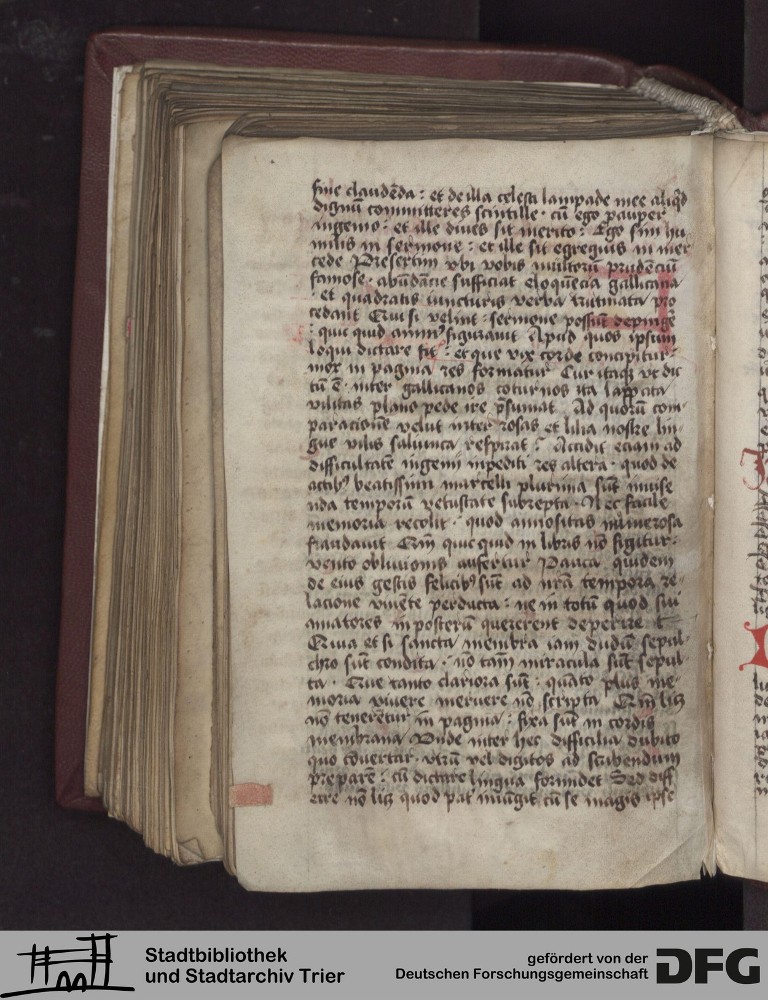 fine claudēda : et de illa celesti lampade mee aliqd
dignū committeres scintille · cū ego pauper
ingenio : et ille diues sit merito : Ego sim hu
milis in sermone : et ille sit egregius in mer
cede Presertim vbi vobis multorū prudēciū
famose · abūdācie sufficiat eloquēcia gallicana
· et quadratis iuncturis verba trutinata pro
cedant Qui si velint : sermone possūt depingē
: quicquid animꝰ figurauit Apud quos ipsum
loqui dictare sit : et que vix corde concipitur :
mox in pagina res formatur Cur itaqȝ vt dic
tū ē · inter gallicanos coturnos ita
vilitas plano pede ire p̄sumat Ad quorū com
paracionē velut inter rosas et lilia nostre lin
gue vilis saliunca respirat : Accidit eciam ad
difficultatē ingenii inpediti res altera · quod de
actibꝰ beatissimi marcelli plurima sūt inuise
nda temporū vetustate subrepta · Nec facile
memoria recolit · quod annositas numerosa
fraudauit Qm̄ quicquid in libris nō figitur :
vento obliuionis aufertur Pauca quidem
de eius gestis felicibꝰ sūt ad nr̄a tempora re
lacione viuēte perducta : ne in totū quod sui
amatores in posterū quererent deperire
Quia et si sancta membra iam dudū sepul
chro sūt condita · nō tam̄ miracula sūt sepul
ta · Que tanto clariora sūt : quāto plus me
moria viuere meruere nō scripta Qm̄ licȝ
nō tenerētur in pagina : fixa sūt in cordis
membrana Unde inter hec difficilia dubito
quo cōuertar · vtrū vel digitos ad scribendum
preparē : cū dictare lingua formidet Sed diff
erre nō licȝ quod pat̄ iniūgit cū se magis ipse
Stadtbibliothek
und Stadtarchiv Trier
gefördert von der
Deutschen Forschungsgemeinschaft
DFG